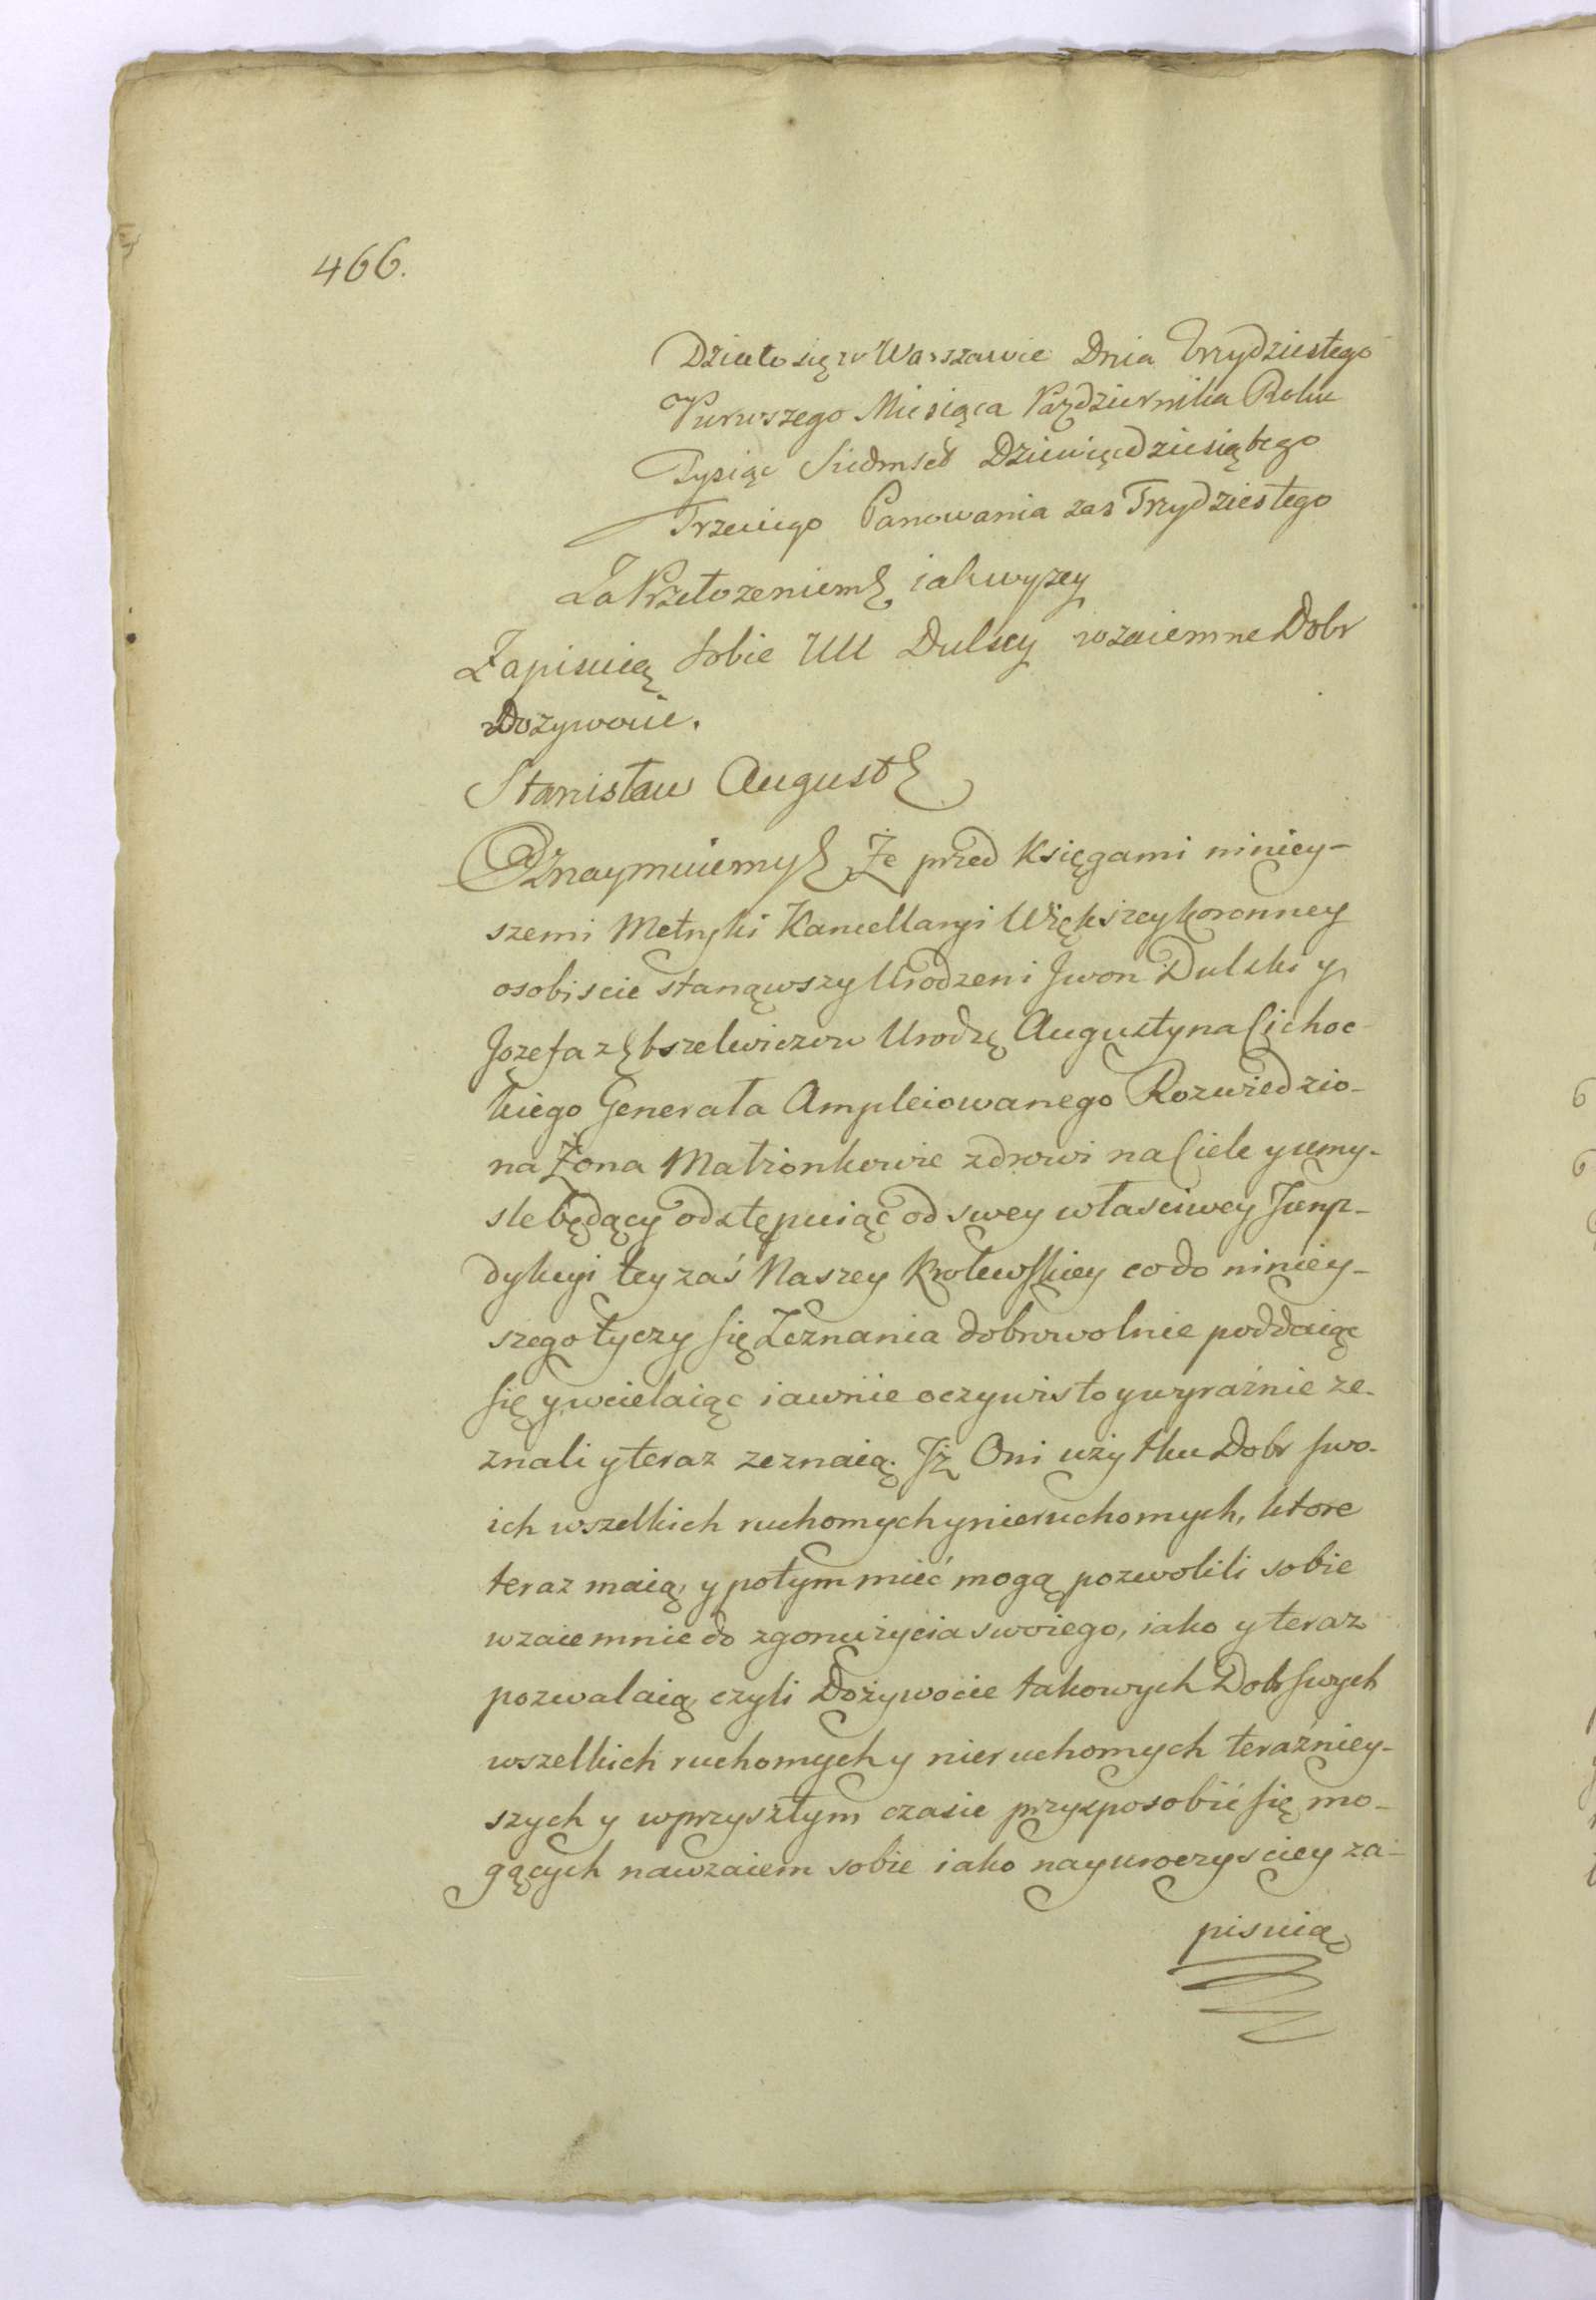 466.
Działo się w Warszawie Dnia Trzydziestego
Pierwszego Miesiąca Października Roku
Tysiąc Siedmset Dziewięćdziesiątego
Trzeciego Panowania zas Trzydziestego
Za Przełożeniem iak wyzey
Zapisuią sobie UU Dulscy wzaiemne Dobr
Dozywocie.
Stanisław August
Oznaymuiemy Że przed Księgami niniey-
szemi Metryki Kancellaryi Większey koronney
osobiscie stanąwszy Urodzeni Jwon Dulski y
Jozefa z Urodzę Augustyna Cichoc-
kiego Generała Ampleiowanego Rozwiedzio-
na Żona Małżonkowie zdrowi na Ciele y umy-
sle będący odstępuiąc od swey własciwey Juryz-
dykcyi tey zaś Naszey Krolewskiey co do niniey-
szego tyczy się Zeznania dobrowolnie poddaiąc
się y wcielaiąc iawnie oczywisto y wyraźnie ze-
znali y teraz zeznaią. Jż Oni użytku Dobr swo-
ich wszelkich ruchomych y nieruchomych, ktore
teraz maią, y potym mieć mogą pozwolili sobie
wzaiemnie do zgonu życia swoiego, iako y teraz
pozwalaią czyli Dożywocie takowych Dobr swych
wszelkich ruchomych y nieruchomych teraźniey-
szych y w przyszłym czasie przysposobić się mo-
gących nawzaiem sobie iako nayuroczysciey za-
pisuią